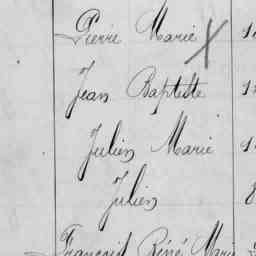 Pierre Marie X
Jean Baptiste
Julien Marie
Julien
François René Marie